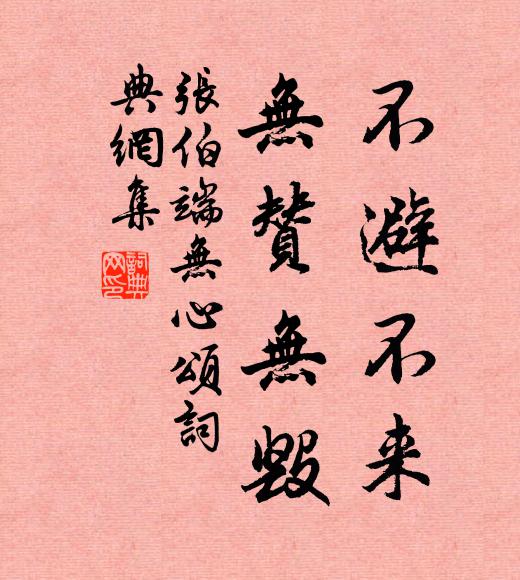 不避不来
無賛無毀
張伯端無心頌詞
典網集
詞典网印